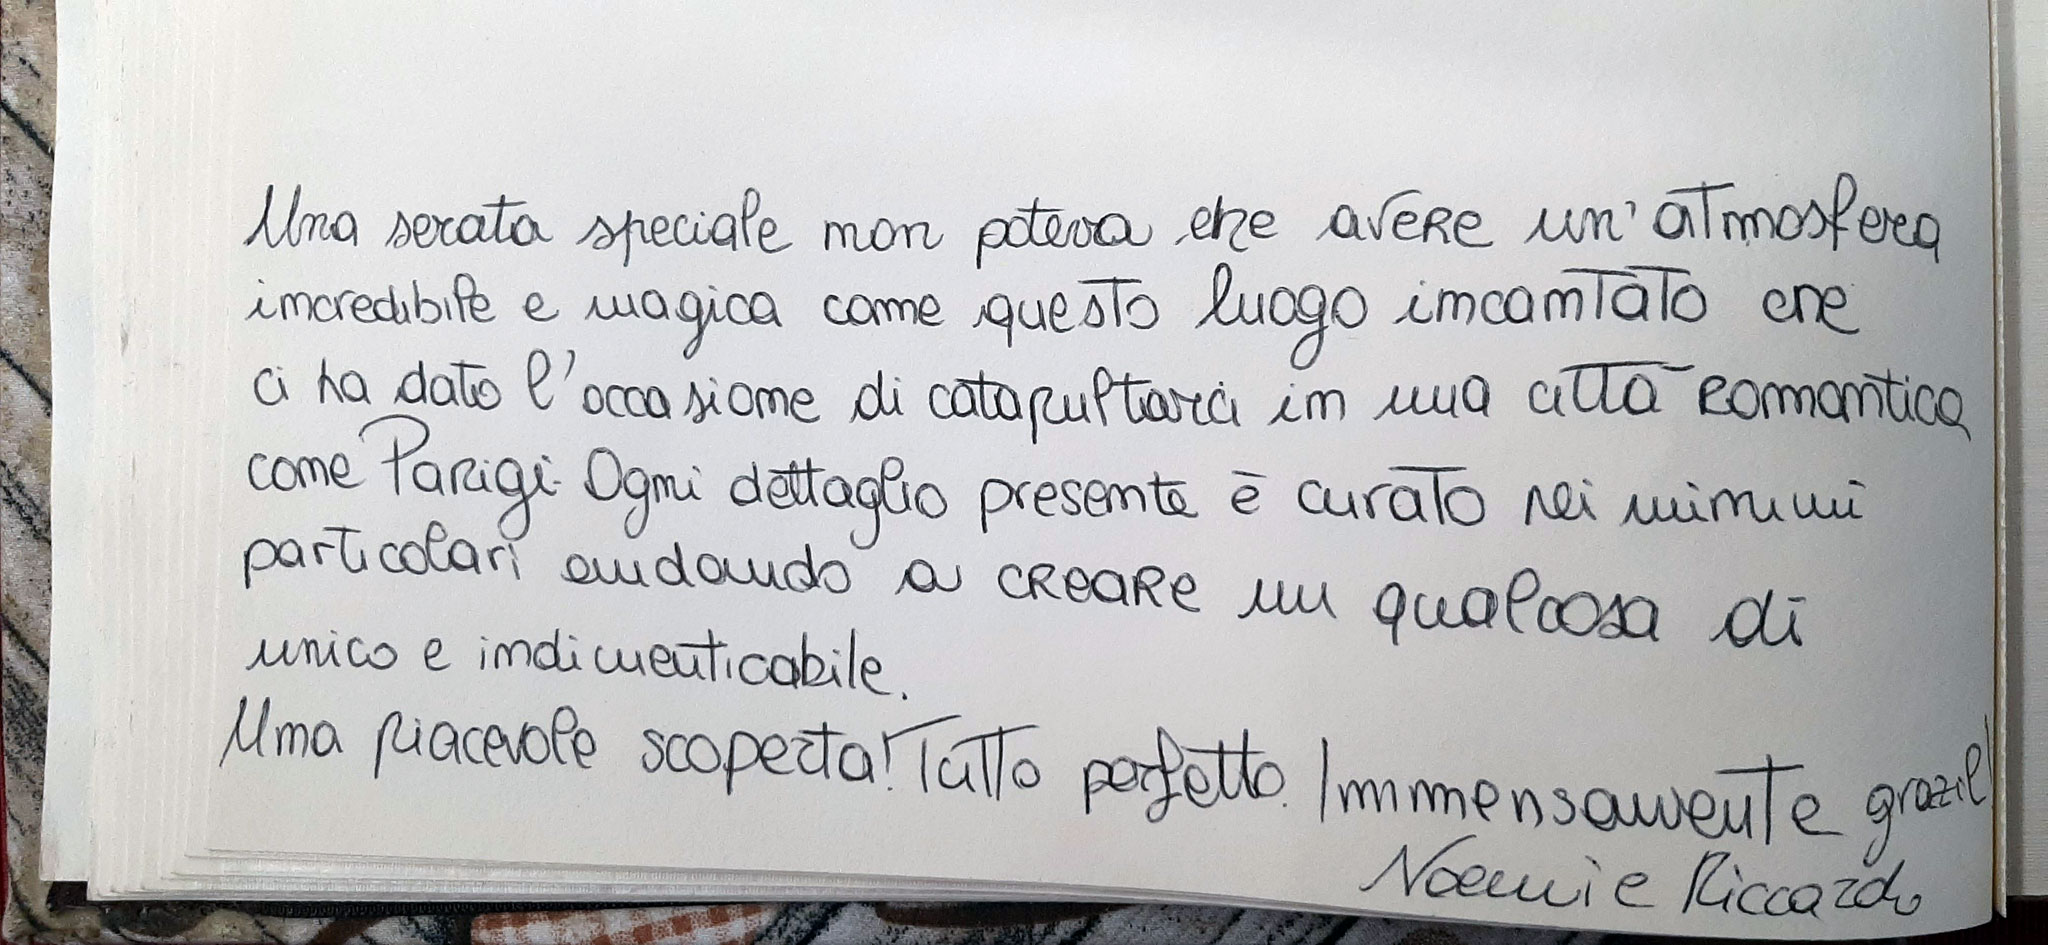 Una serata speciale non poteva che avere un'atmosfera
incredibile e magica come questo luogo incantato che
ci ha dato l'occasione di catapultarci in una città romantica
come Parigi. Ogni dettaglio presente è curato nei minimi
particolari andando a creare un qualcosa di
unico e indimenticabile.
Una piacevole scoperta! Tutto perfetto. Immensamente grazie!
Noemi e Riccardo